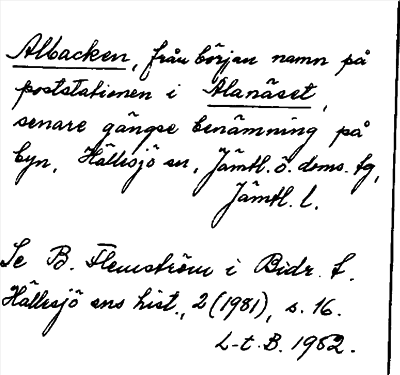 Albacken, från början namn på
poststationen i Alanäset,
senare gängse benämning på
byn, Hällesjö sn, Jämtl. ö. doms. tg,
Jämtl. l.
Se B. Flemström i Bidr. t.
Hällesjö sns hist., 2 (1981), s. 16.
L-t. B. 1982.